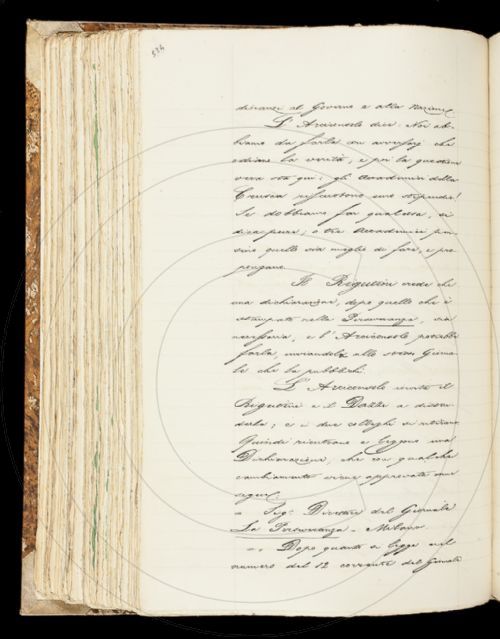 534
dinanzi al Governo e alla Nazione.
L'Arciconsolo dice: Noi ab-
biamo da farla con avversarj che
odiano la verità; e poi la questione
vera sta qui; gli Accademici della
Crusca riscuotono uno stipendio!
Se dobbiamo far qualcosa, si
dica pure; o tre Accademici pen-
sino quello sia meglio di fare, e pro-
pongano.
Il Rigutini crede che
una dichiarazione, dopo quello che è
stampato nella Perseveranza, sia
necessaria, e l'Arciconsolo potrebbe
farla, inviandola allo stesso Giorna-
le che la pubblichi.
L'Arciconsolo invita il
Rigutini e il Dazzi a disten-
derla; e i due colleghi si ritirano.
Quindi rientrano e leggono una
Dichiarazione, che con qualche
cambiamento viene approvata come
segue.
= Sig. Direttore del Giornale
La Perseveranza - Milano.
= Dopo quanto si legge nel
numero del 12 corrente del Giornale